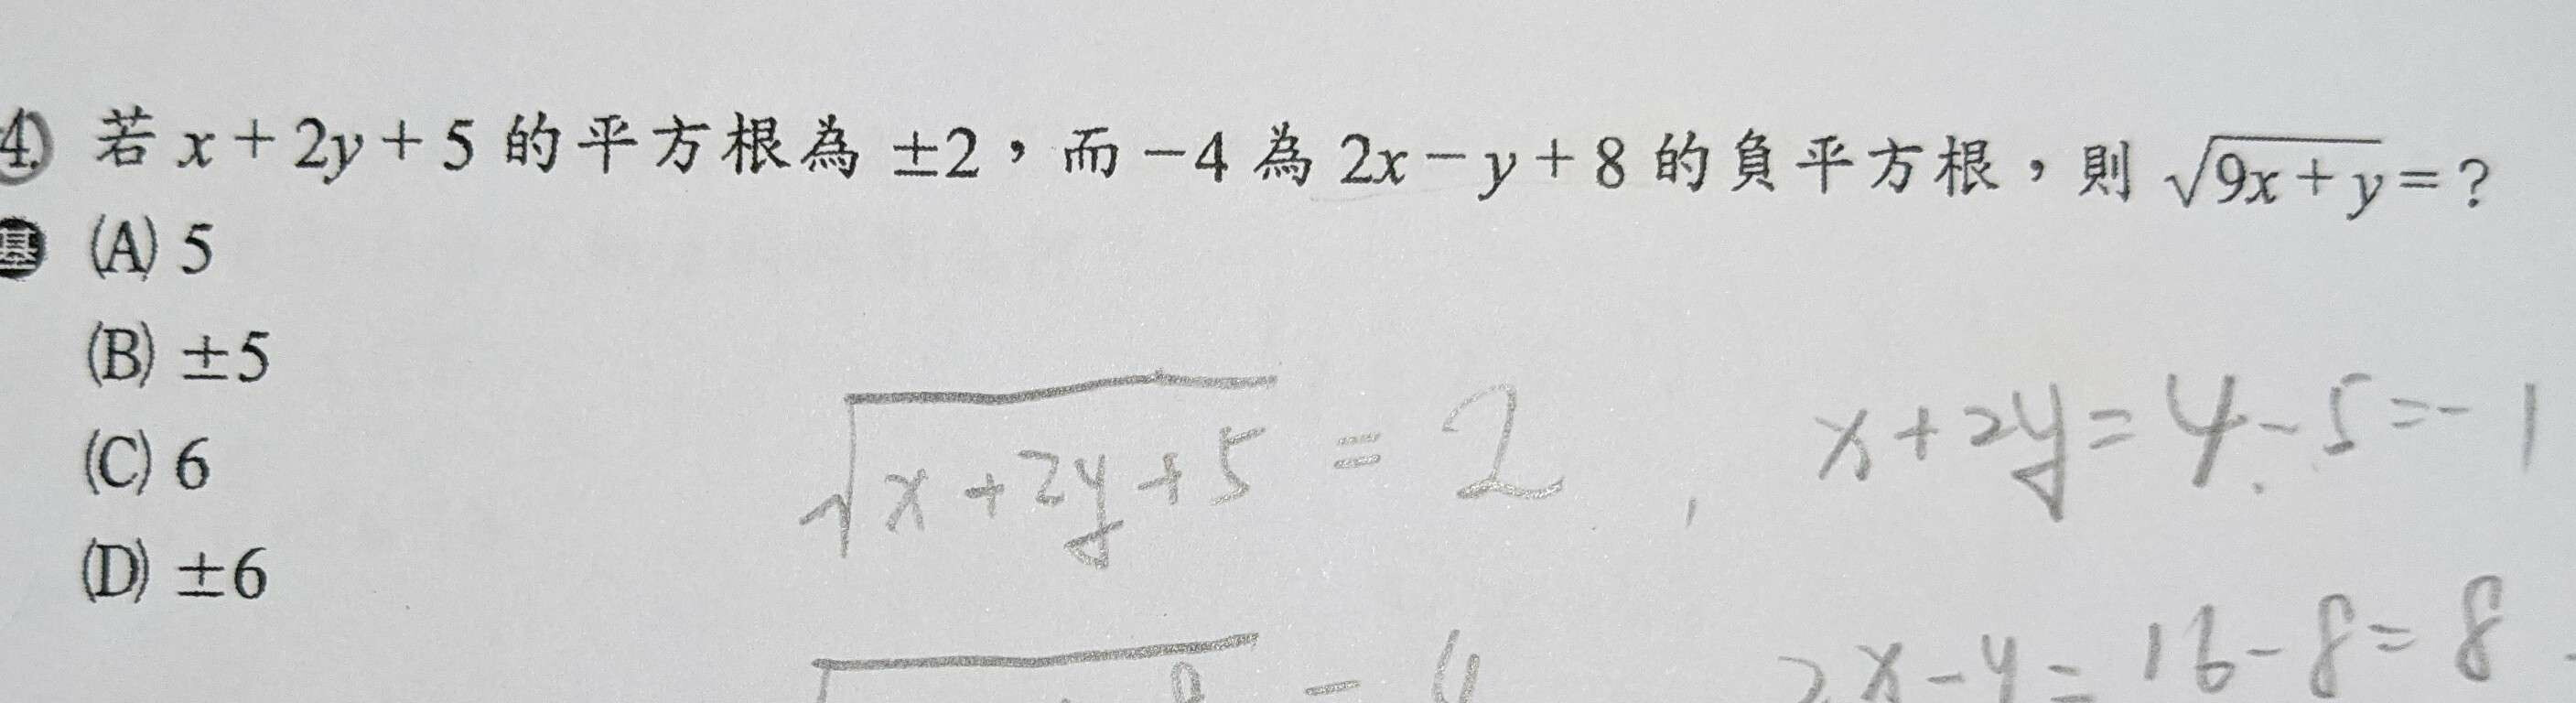 4. 若 x + 2y + 5 的平方根為 ±2，而 −4 為 2x − y + 8 的負平方根，則 √(9x + y) = ?
(A) 5
(B) ±5
(C) 6
(D) ±6
√(x + 2y + 5) = 2 , x + 2y = 4 - 5 = -1
2x - y = 16 - 8 = 8